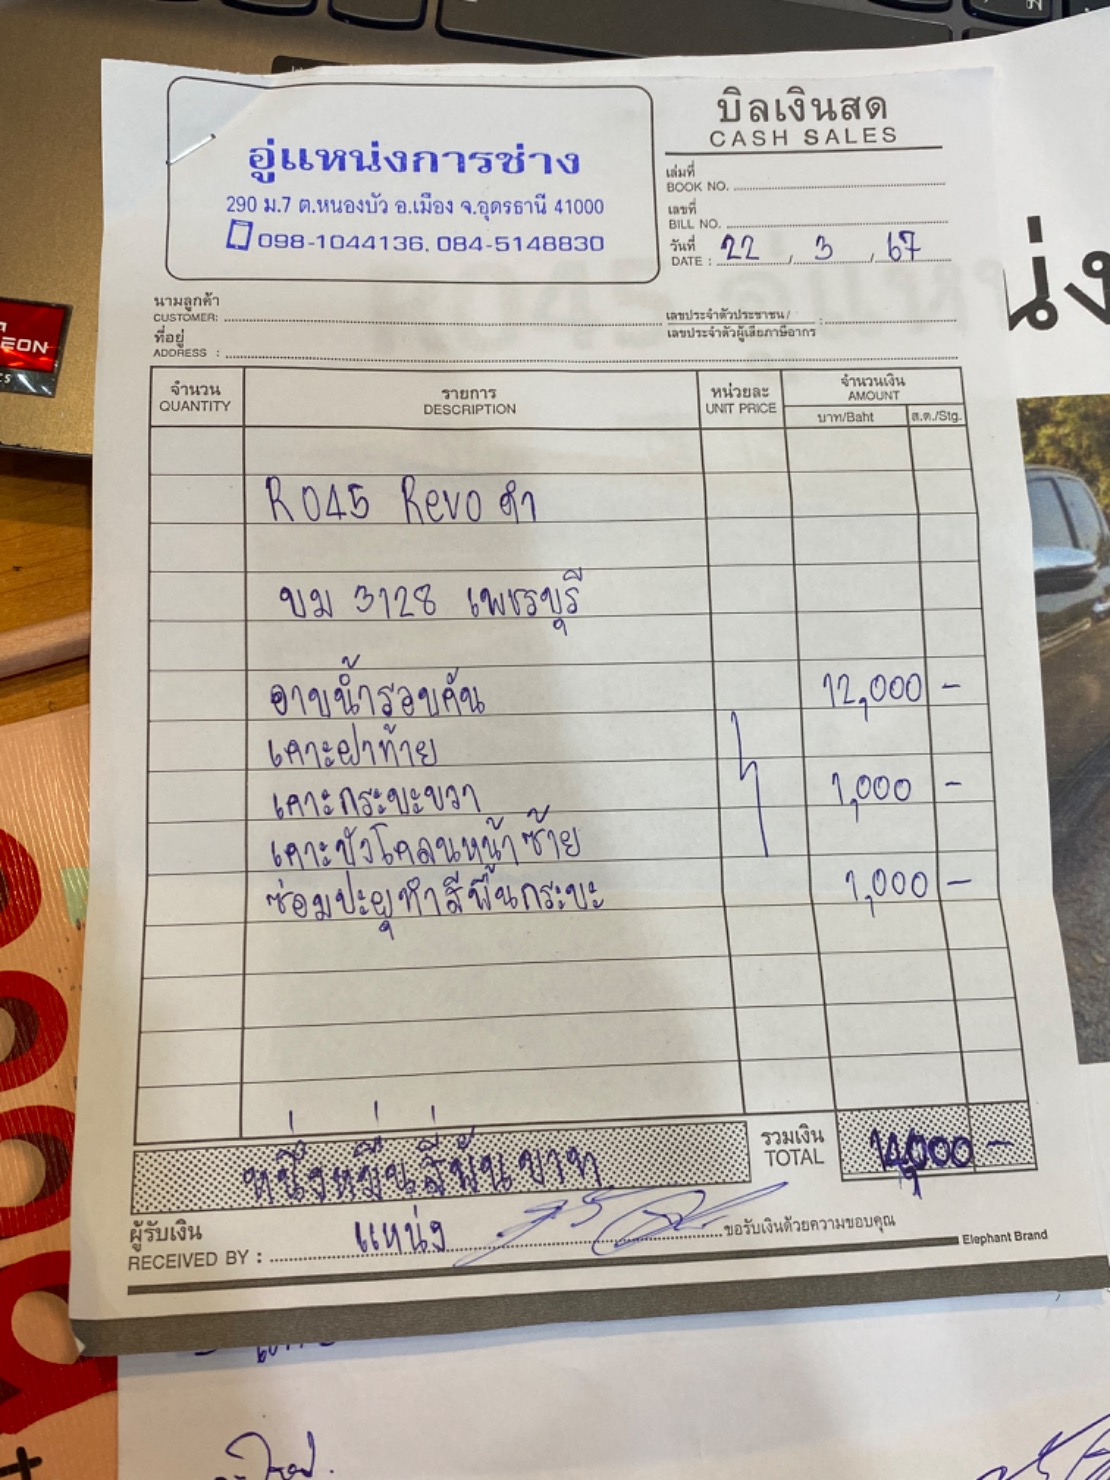 อู่แหน่งการช่าง
290 ม.7 ต.หนองบัว อ.เมือง จ.อุดรธานี 41000
098-1044136, 084-5148830
บิลเงินสด
CASH SALES
เล่มที่
BOOK NO.
เลขที่
BILL NO.
วันที่
DATE : 22 , 3 , 67
นามลูกค้า
CUSTOMER:
เลขประจำตัวประชาชน /
เลขประจำตัวผู้เสียภาษีอากร :
ที่อยู่
ADDRESS :
จำนวน รายการ หน่วยละ จำนวนเงิน
QUANTITY DESCRIPTION UNIT PRICE AMOUNT
บาท/Baht ส.ต./Stg.
R045 Revo ดำ
บม 3128 เพชรบุรี
อาบน้ำรอบคัน 12,000 -
เคาะฝาท้าย
เคาะกระบะขวา 1,000 -
เคาะบังโคลนหน้าซ้าย
ซ่อมปะผุทำสีพื้นกระบะ 1,000 -
หนึ่งหมื่นสี่พันบาท
รวมเงิน
TOTAL 14,000 -
ผู้รับเงิน
RECEIVED BY : แหน่ง ขอรับเงินด้วยความขอบคุณ
Elephant Brand
น่ง
EON